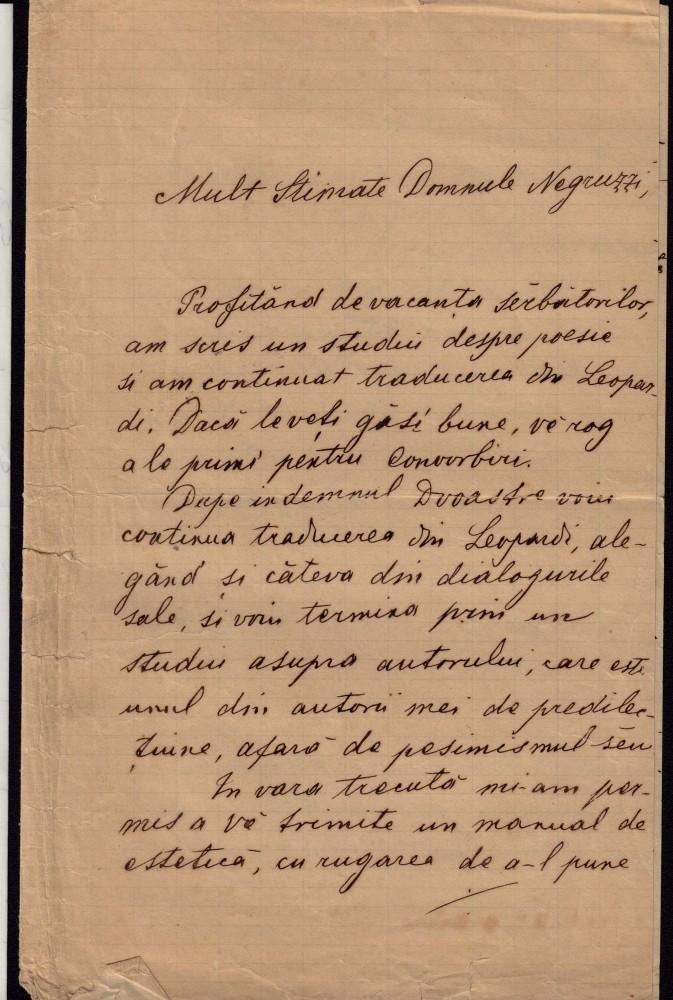 Mult Stimate Domnule Negruzzi,
Profitând de vacanța sĕrbătorilor,
am scris un studiu despre poesie
si am continuat traducerea din Leopar-
di. Dacă le veți găsi bune, vĕ rog
a le primi pentru Convorbiri.
Dupe indemnul Dvoastre voiu
continua traducerea din Leopardi, ale-
gând si câteva din dialogurile
sale, si voiu termina prin un
studiu asupra autorului, care este
unul din autorii mei de predilec-
țiune, afară de pesimismul sĕu
In vara trecută mi-am per-
mis a Vĕ trimite un manual de
estetică, cu rugarea de a-l pune